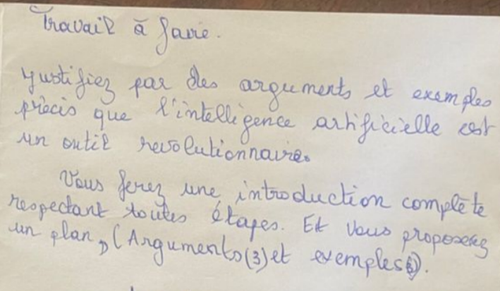 Travail à faire.
Justifiez par des arguments et exemples
précis que l'intelligence artificielle est
un outil revolutionnaire.
Vous ferez une introduction complète
respectant toutes étapes. Et vous proposerez
un plan, (Arguments(3) et exemples).